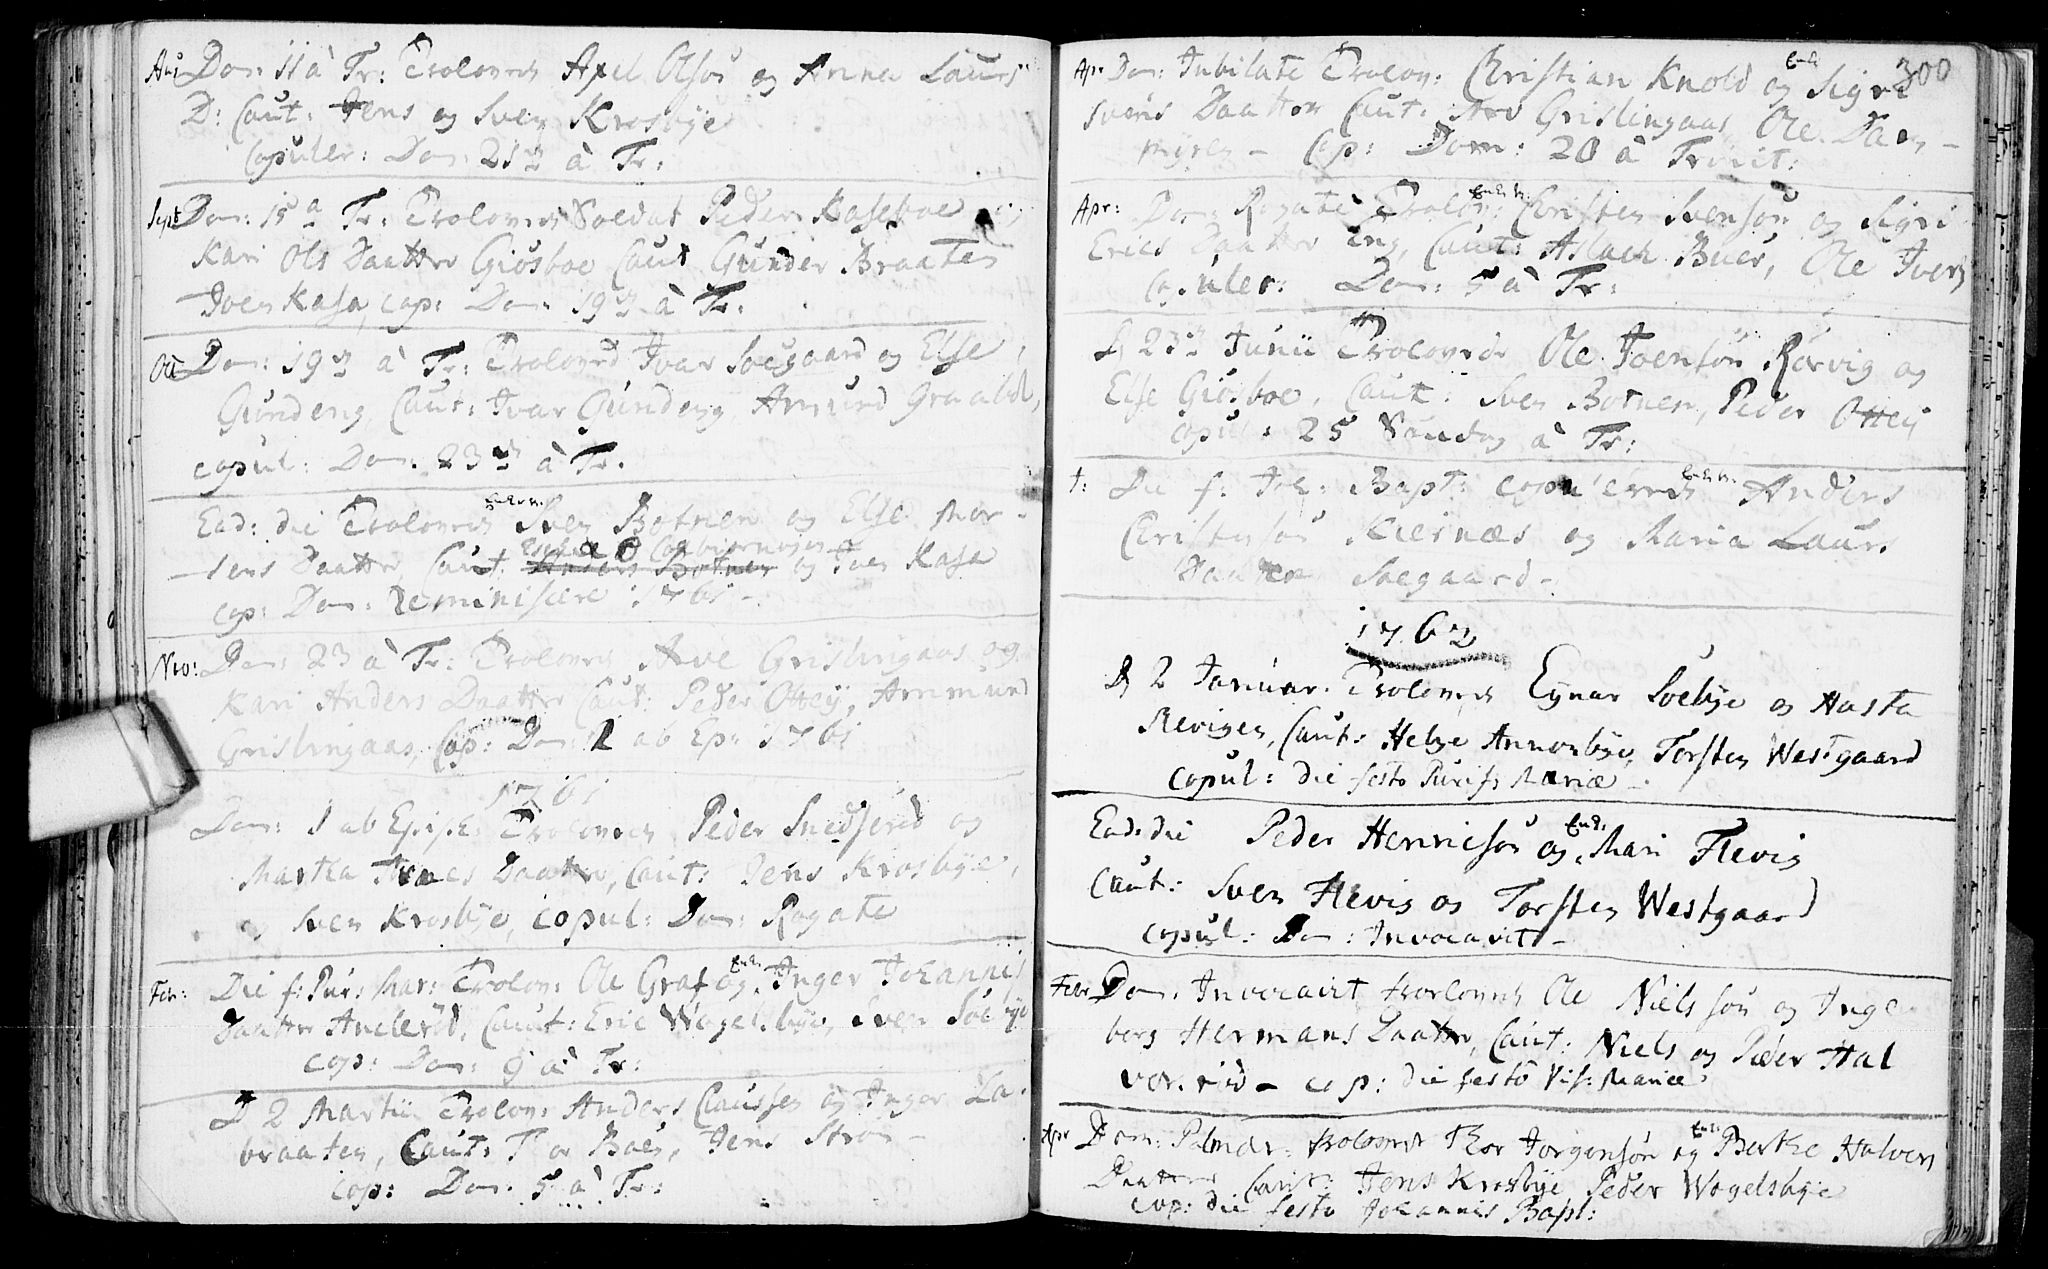 Aug Dom: 11 à Tr: Troloved Axel Olsøn og Anna Laurs
D: Caut: Jens og Sven Krosbye
Copuler: Dom: 21 à Tr:
Sept Dom: 15 à Tr: Troloved Soldat Peder Kaseboe og
Kari Ols Daatter Giösboe Caut Gunder Braaten
Iven Kasa, cop: Dom: 19 à Tr:
Oct Dom: 19 à Tr: Troloved Ivar Soegaard og Else
Gundeng, Caut: Ivar Gundeng, Amund Graabøl,
copul: Dom. 23 à Tr.
Ead: die Troloved Enkem. Sven Botner og Else Mor-
tens Daatter, Caut: Anders Botner og Iven Kasa
cop: Dom: Reminiscere 1761 -
Nov: Dom: 23 à Tr: Troloved Arve Grislingaas og
Kari Anders Daatter Caut: Peder Ottey, Ammund
Grislingaas, Cop: Dom: 1 ab Ep: 1761
1761
Dom: 1 ab Epiph: Troloved Peder Snedserud og
Martha Arnes Daatter, Caut: Jens Krosbye,
og Sven Krosbye, copul: Dom: Rogate
Febr: Die f: Pur: Mar: Trolov: Ole Graf og Enk. Inger Johannis
Daatter Anclerød, Caut: Eric Wogelsbye, Sven Soebye
cop: Dom: 9 à Tr:
D 2 Martii Trolov: Anders Claussen og Inger La-
braaten, Caut: Tor Boen, Jens Strøm -
cop: Dom. 5 à Tr:
300
Apr Dom: Jubilate Trolov: Christian Knold og Enk Sigri
Svens Daatter Caut: Arv Grislingaas, Ole Dam-
myren - Cop: Dom: 20 à Trinit:
Apr: Dom: Rogate Trolov: Enkem. Christen Svensøn og Sigri
Erics Daatter Eng, Caut: Aslach Buer, Ole Ivers
Copuler: Dom: 5 à Tr:
D 23 Junii Trolovede Ole Joensøn Rørvig og
Else Giösboe, Caut: Sven Botner, Peder Ottey
copul: 25 Søndag à Tr:
t: Die f: Joh: Bapt: copulered Enkem. Anders
Christensøn Kiernæs og Maria Laurs
Daatter Soegaard -
1762
D 2 Januar. Troloved Eynar Soebye og Aasta
Revigen, Caut: Helge Annonbye, Torsten Westgaard
Copul: die festo Purif: Mariæ -
Ead: die Peder Henricsøn og Enk: Mari Flevig
Caut: Sven Flevig og Torsten Westgaard
copul: Dom: Invocavit -
Febr Dom: Invocavit troloved Ole Nielssøn og Inge-
borg Hermans Daatter, Caut: Niels og Peder Hal
vorsrød - cop: die festo Vis: Mariæ
Apr Dom: Palmar: troloved Thor Jörgensøn og Enk: Berthe Halvors
Daatter Caut: Jens Krosbye, Peder Wogelsbye
cop: die festo Johannis Bapt: